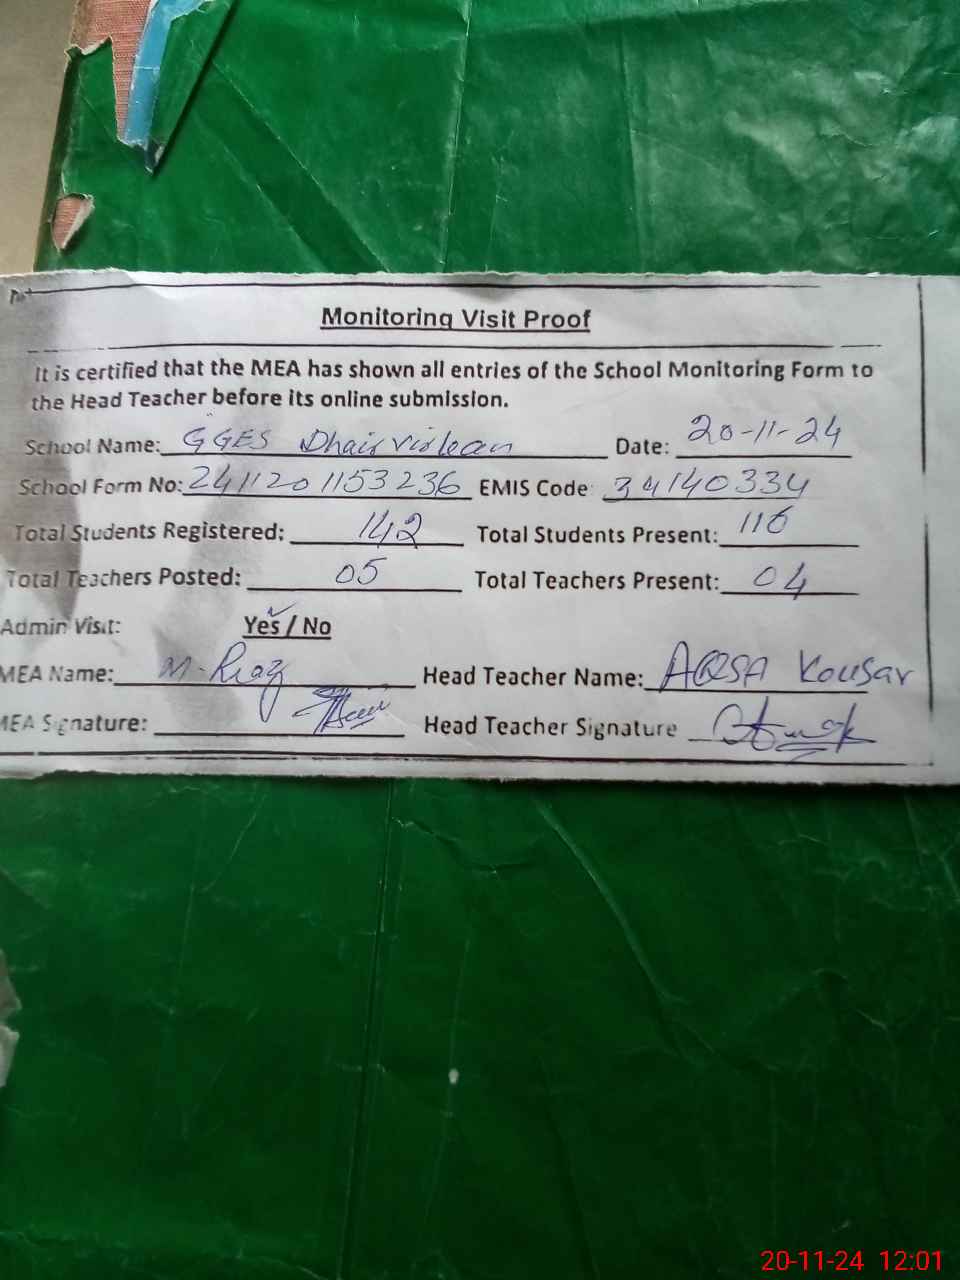 Monitoring Visit Proof
It is certified that the MEA has shown all entries of the School Monitoring Form to
the Head Teacher before its online submission.
School Name: GGES Dhair Virkan Date: 20-11-24
School Form No: 241120 1153236 EMIS Code 34140334
Total Students Registered: 142 Total Students Present: 116
Total Teachers Posted: 05 Total Teachers Present: 04
Admin Visit: Yes / No
MEA Name: M. Riaz Head Teacher Name: AQSA Kousar
MEA Signature: Head Teacher Signature
20-11-24 12:01